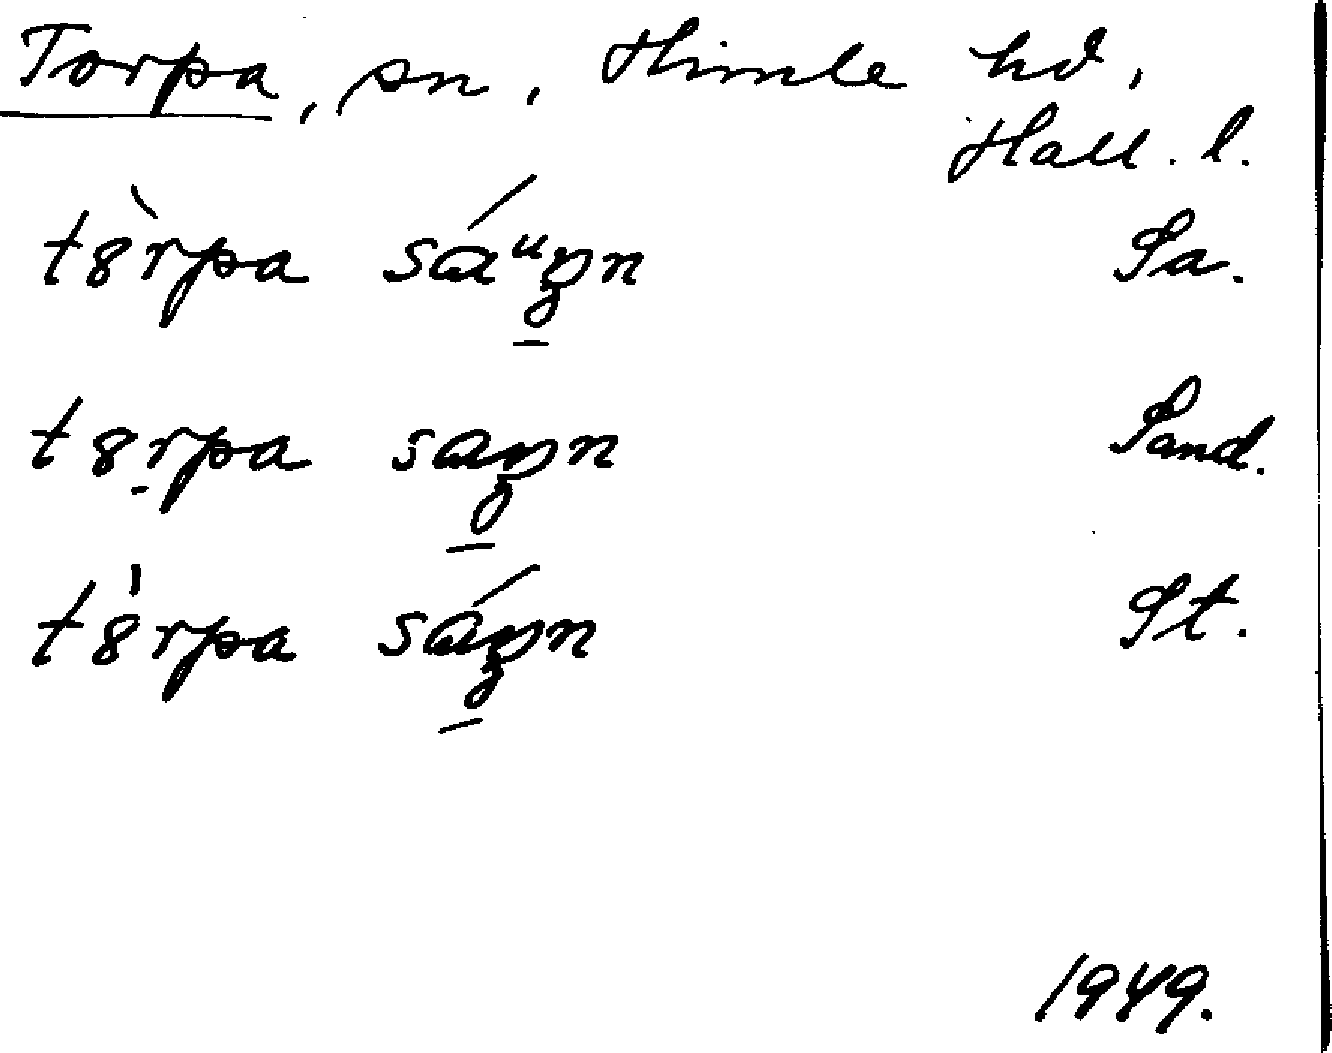 Torpa, sn, Himle hd,
Hall. l.
tȣ̀rpa sáᵘꭓn Sa.
tȣrpa saꭓn Sand.
tȣ̍rpa sáꭓn St.
1949.